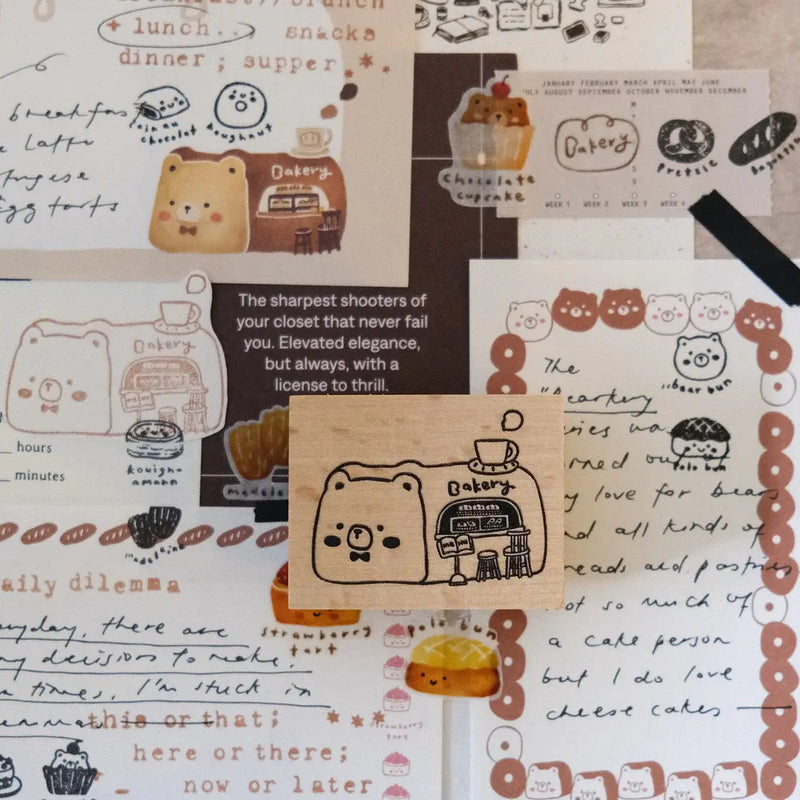 breakfast // brunch
+ lunch.. snacks
dinner ; supper
breakfast
latte
egg tarts
pain au
chocolat
doughnut
Bakery
Chocolate
cupcake
JANUARY FEBRUARY MARCH APRIL MAY JUNE
JULY AUGUST SEPTEMBER OCTOBER NOVEMBER DECEMBER
M
T
S
S
Bakery
Pretzie
baguette
WEEK 1 WEEK 2 WEEK 3 WEEK 4
The sharpest shooters of
your closet that never fail
you. Elevated elegance,
but always, with a
license to thrill.
Bakery
hours
minutes
kouign-
amann
madele
madeleine
Bakery
The
"bearkery
bear bun
polo bun
love for bears
all kinds of
and pastries
not so much of
a cake person
but I do love
cheese cakes —
strawberry
tart
polo bun
strawberry
tart
daily dilemma
everyday, there are
decisions to make.
times, I'm stuck in
this or that;
here or there;
now or later